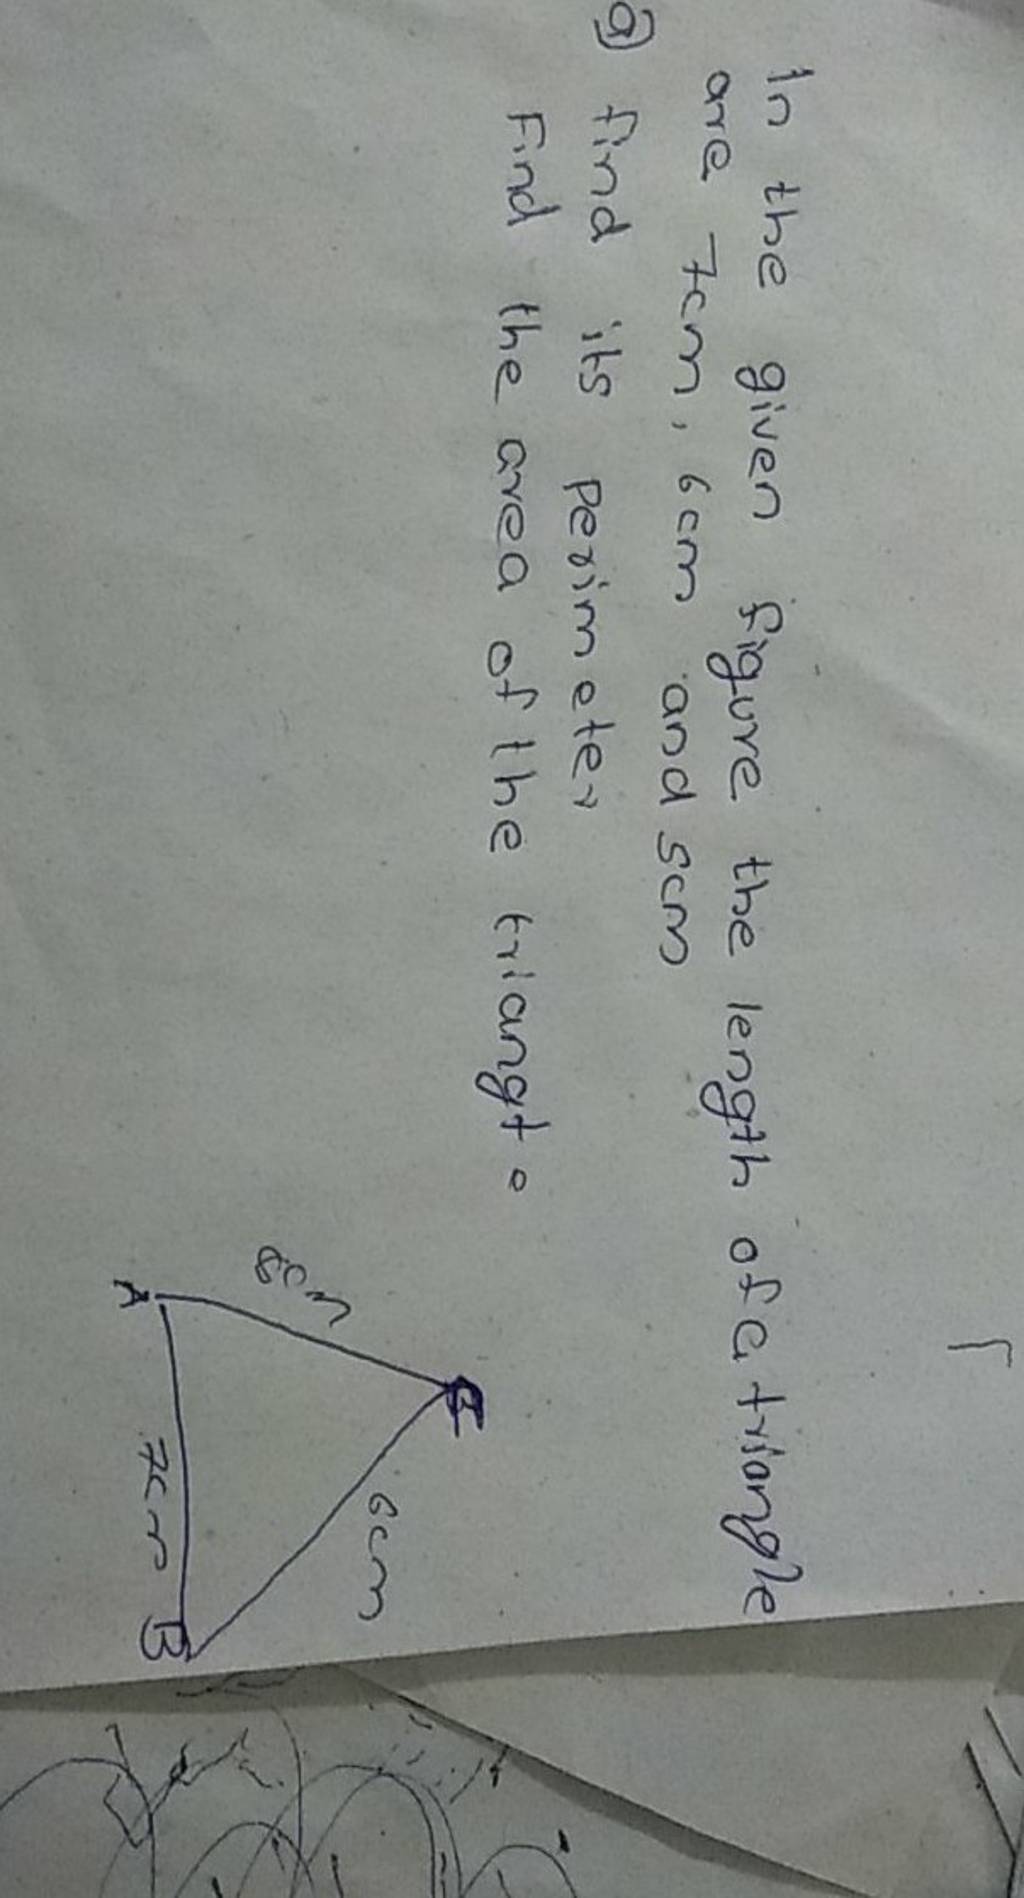 In the given figure the length of a triangle
are 7cm, 6cm and 5cm
a) find its perimeter
Find the area of the triangle
6cm
A
7cm
B